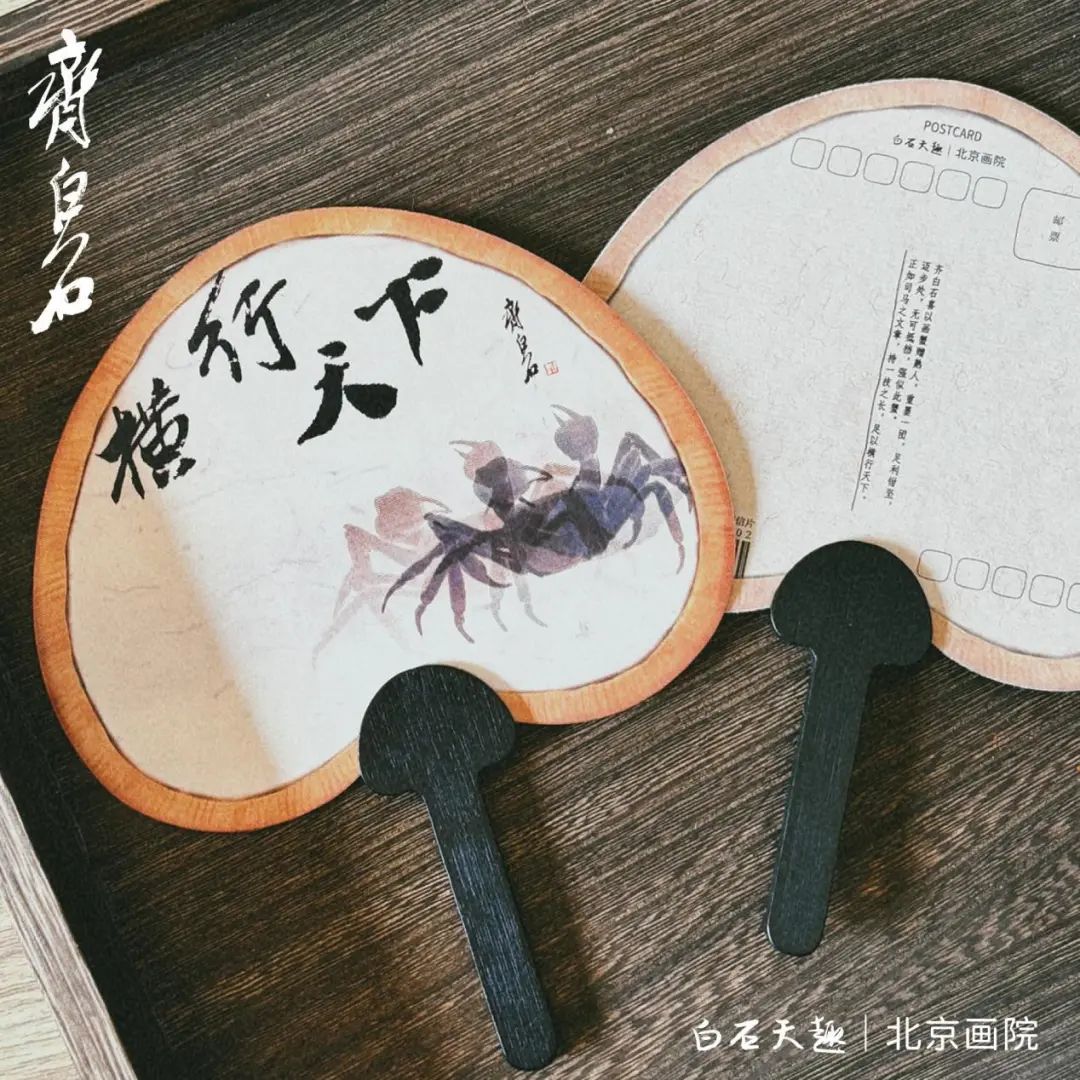 齊白石
橫行天下
齊白石
POSTCARD
白石天趣｜北京画院
邮票
齐白石喜以画蟹赠熟人，重墨一团，足利钳至，
迈步处，无可抵挡，强似此蟹。
正如司马之文章，持一技之长，足以横行天下。
信片
02
白石天趣｜北京画院